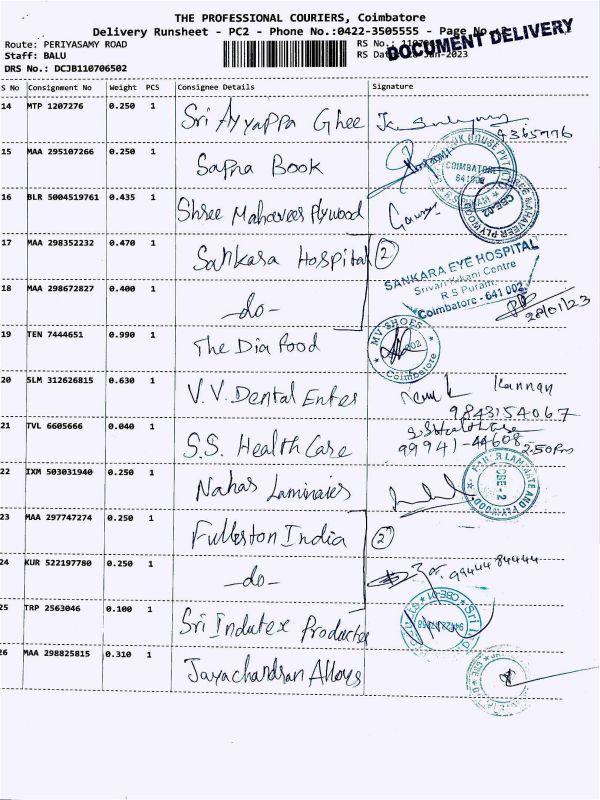 THE PROFESSIONAL COURIERS, Coimbatore
Delivery Runsheet - PC2 - Phone No.:0422-3505555 - Page No.
DOCUMENT DELIVERY
Route: PERIYASAMY ROAD
RS No.:
Staff: BALU
RS Date
-Jan-2023
DRS No.: DCJB110706502
S No Consignment No Weight PCS Consignee Details Signature
14 MTP 1207276 0.250 1 Sri Ayyappa Ghee
15 MAA 295107266 0.250 1 Sapna Book
COIMBATORE
16 BLR 5004519761 0.435 1 Shree Mahaveer Plywood
CBE-02
17 MAA 298352232 0.470 1 Sankara Hospital 2
SANKARA EYE HOSPITAL
Srivari Kikani Centre
R S Puram,
Coimbatore - 641 002
28/01/23
18 MAA 298672827 0.400 1 -do-
19 TEN 7444651 0.990 1 The Dia Food
MV SHOES
Coimbatore
20 SLM 312626815 0.630 1 V.V. Dental Enter
Kannan
9843154067
21 TVL 6605666 0.040 1 S.S. Health Care
S.S Health Care
99941-44608 2.50 Pm
22 IXM 503031940 0.250 1 Nahar Laminates
CBE - 2
23 MAA 297747274 0.250 1 Fullerton India 2
24 KUR 522197780 0.250 1 -do-
99444 84444
25 TRP 2563046 0.100 1 Sri Indutex Products
26 MAA 298825815 0.310 1 Jayachandran Alloys